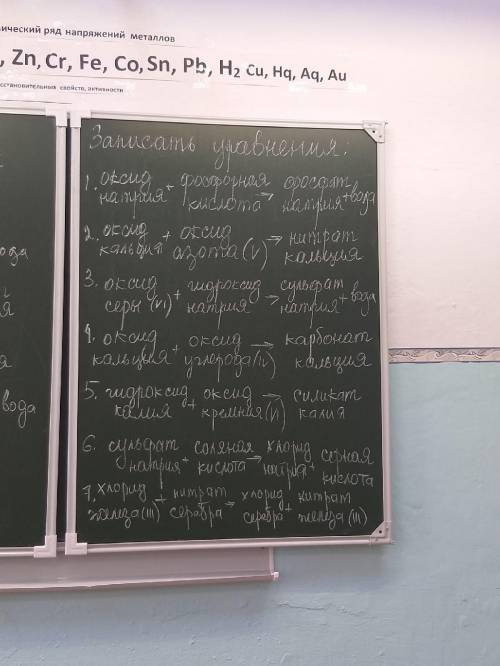 ический ряд напряжений металлов
, Zn, Cr, Fe, Co, Sn, Pb, H2 Cu, Hq, Aq, Au
сстановительных свойств, активности
Записать уравнения:
1. оксид натрия + фосфорная кислота → фосфат натрия + вода
2. оксид кальция + оксид азота (V) → нитрат кальция
3. оксид серы (VI) + гидроксид натрия → сульфат натрия + вода
4. оксид кальция + оксид углерода (IV) → карбонат кальция
5. гидроксид калия + оксид кремния (IV) → силикат калия
6. сульфат натрия + соляная кислота → хлорид натрия + серная кислота
7. хлорид железа (III) + нитрат серебра → хлорид серебра + нитрат железа (III)
ода
я
вода